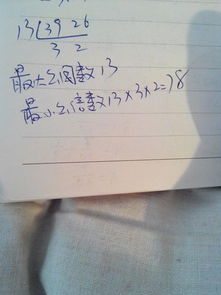 13 39 26
3 2
最大公因数13
最小公倍数13×3×2=78